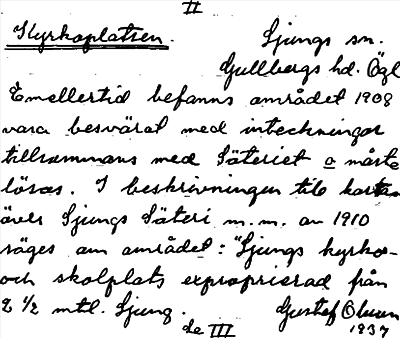 II
Kyrkoplatsen.
Ljungs sn.
Gullbergs hd. Ögl
Emellertid befanns området 1908
vara besvärat med inteckningar
tillsammans med Säteriet o måste
lösas. I beskrivningen till kartan
över Ljungs Säteri m.m. av 1910
säges om området: "Ljungs kyrko-
och skolplats exproprierad från
2 1/2 mtl. Ljung.
Gustaf Olsson
1937
se III